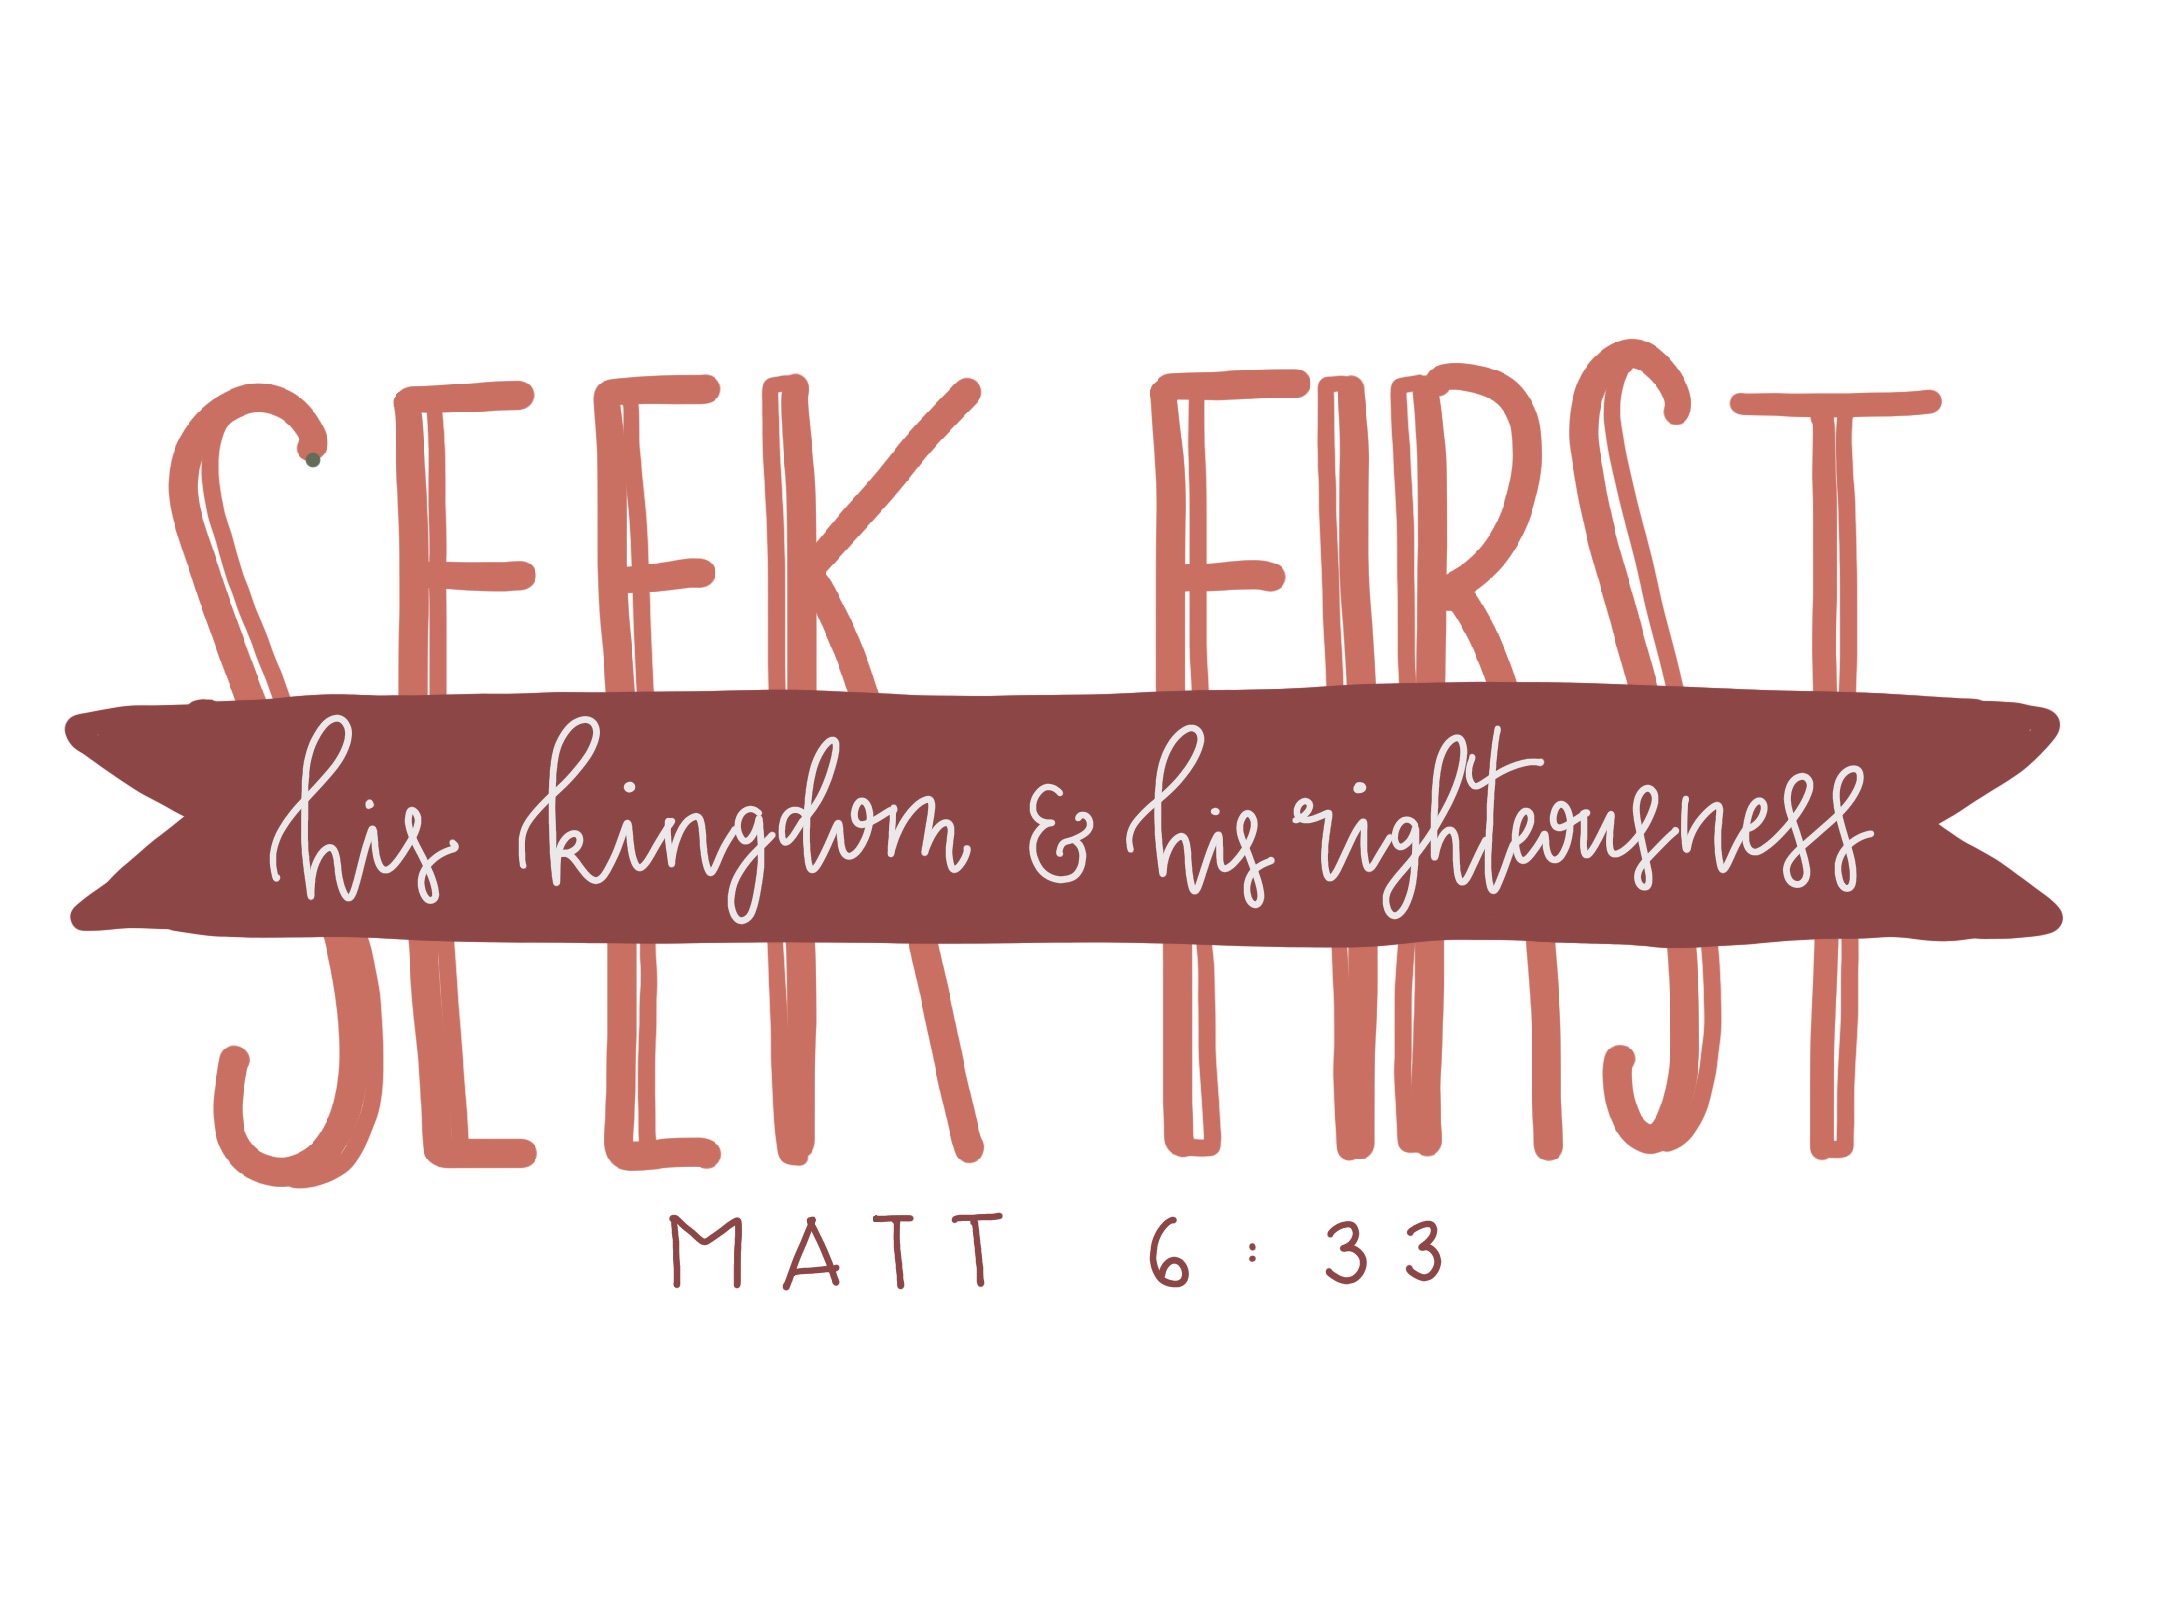 SEEK FIRST
his kingdom & his righteousness
MATT 6:33